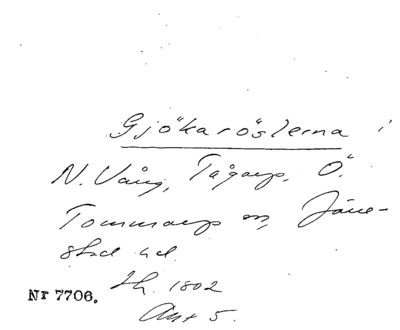 Gjökaröslerna i
N. Vång, Tågarp, Ö.
Tommarp o, Järre-
stad hd.
Nr 7706. Sk. 1802
Akt 5.